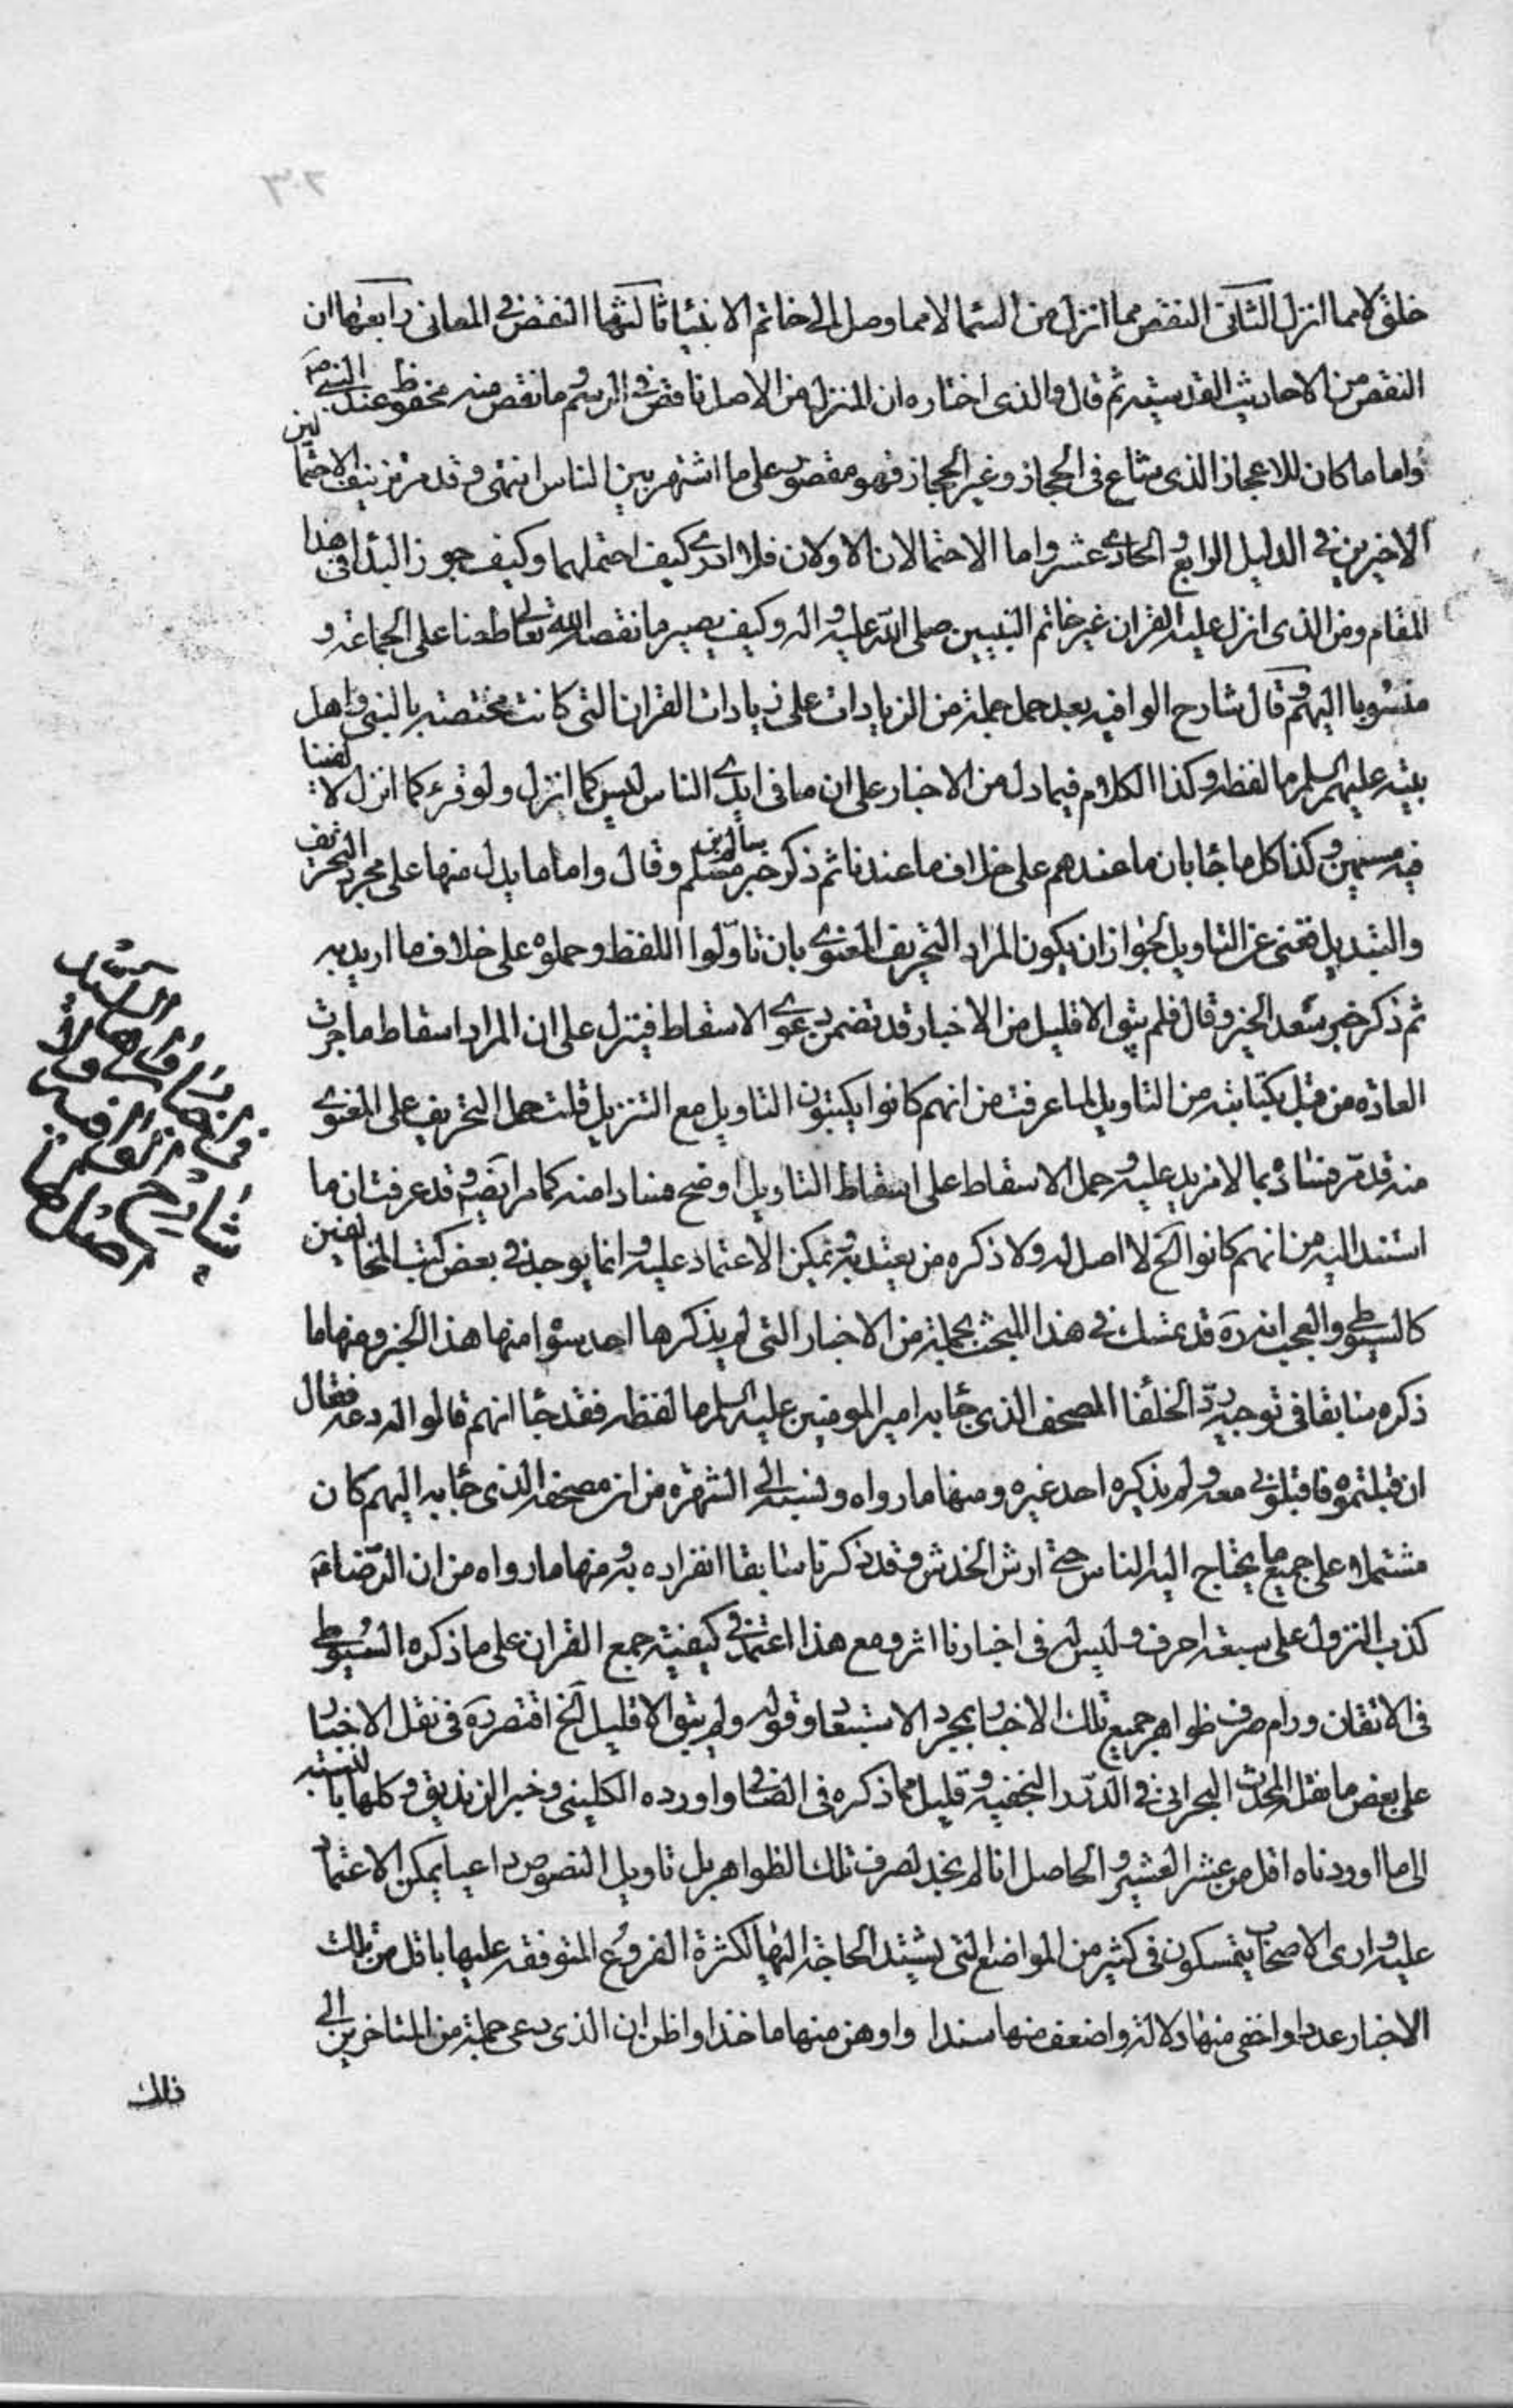 خلق لا مما انزل الثانی النقص مما انزل من السما لا مما وصل الی خاتم الانبیا ثالثها النقص فی المعانی رابعها ان
النقص من الاحادیث القدسیه ثم قال والذی اختاره ان المنزل من الاصل ناقص فی الرسم وما نقص منه محفوظ عند النبی ص
واما ما کان للاعجاز الذی شاع فی الحجاز وغیر الحجاز فهو مقصور علی ما اشتهر بین الناس انتهی وقد مر تزییف الاحتمالین
الاخیرین فی الدلیل الرابع والحادی عشر واما الاحتمالان الاولان فلا ادری کیف احتملهما وکیف جوز البدا فی هذا
المقام ومن الذی انزل علیه القران غیر خاتم النبیین صلی الله علیه واله وکیف یصیر ما نقصه الله تعالی طعنا علی الجماعة و
منسوبا الیهم وقال شارح الوافیه بعد حمل جملة من الزیادات علی زیادات القران التی کانت مختصة بالنبی واهل
بیته علیهم السلم ما لفظه وکذا الکلام فیما دل من الاخبار علی ان ما فی ایدی الناس لیس کما انزل ولو قرء کما انزل لالفینا
فیه مسمین وکذا کل ما جا بان ما عندهم علی خلاف ما عندنا ثم ذکر خبر سالم بن مسلم وقال واما ما یدل منها علی مجرد التحریف
والتبدیل فغنی عن التاویل لجواز ان یکون المراد التحریف المعنوی بان تاولوا اللفظ وحملوه علی خلاف ما ارید به
ثم ذکر خبر سعد الخیر وقال فلم یبق الا قلیل من الاخبار قد تضمن دعوی الاسقاط فینزل علی ان المراد اسقاط ما جرت
العادة من قبل بکتابته من التاویل لما عرفت من انهم کانوا یکتبون التاویل مع التنزیل قلت حمل التحریف علی المعنوی
منه قد مر فساده بما لا مزید علیه وحمل الاسقاط علی اسقاط التاویل اوضح فسادا منه کما مر ایضا وقد عرفت ان ما
استند الیه من انهم کانوا الخ لا اصل له ولا ذکره من یعتد به ویمکن الاعتماد علیه وانما یوجد فی بعض کتب المخالفین
کالسیوطی والعجب انه ره قد تمسک فی هذا المبحث بجملة من الاخبار التی لم یذکرها احد سوا منها هذا الخبر ومنها ما
ذکره سابقا فی توجیه رد الخلفا المصحف الذی جا به امیر المومنین علیه السلم ما لفظه فقد جا انهم قالوا له دعه فقال
ان قبلتموه فاقبلونی معه ولم یذکره احد غیره ومنها ما رواه ونسبه الی الشهرة من ان مصحفه الذی جا به الیهم کان
مشتملا علی جمیع ما یحتاج الیه الناس حتی ارش الخدش وقد ذکرنا سابقا انفراده به ومنها ما رواه من ان الرضا ع
کذب النزول علی سبعة احرف ولیس له فی اخبارنا اثر ومع هذا اعتمد فی کیفیة جمع القران علی ما ذکره السیوطی
فی الاتقان ورام صرف ظواهر جمیع تلک الاخبار بمجرد الاستبعاد وقوله ولم یبق الا قلیل الخ اقتصر ره فی نقل الاخبار
علی بعض ما نقل المحدث البحرانی فی الدرر النجفیه وقلیل مما ذکره فی الصافی واورده الکلینی وخبر الزندیق وکلها بالنسبة
الی ما اوردناه اقل من عشر العشیر والحاصل انا لم نجد لصرف تلک الظواهر بل تاویل النصوص داعیا یمکن الاعتماد
علیه واری الاصحاب یتمسکون فی کثیر من المواضع التی یشتد الحاجة الیها لکثرة الفروع المتوقفه علیها باقل من تلک
الاخبار عددا واخفی منها دلالة واضعف منها سندا واوهن منها ماخذا واظن ان الذی دعی جملة من المتاخرین الی
ذلک